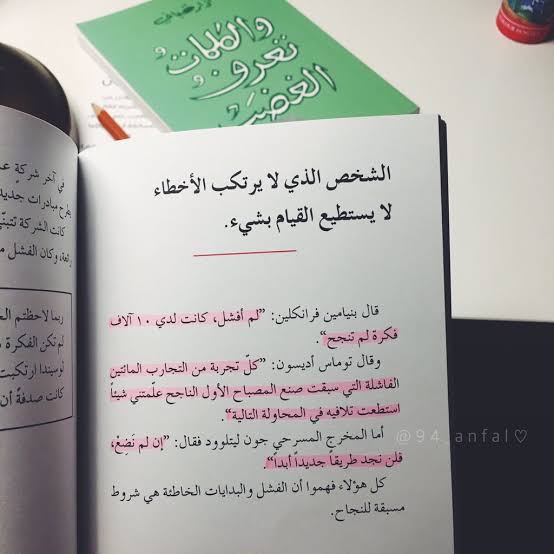 والكلمات
تعرف
الغضب
الشخص الذي لا يرتكب الأخطاء
لا يستطيع القيام بشيء.
قال بنيامين فرانكلين: ”لم أفشل، كانت لدي ١٠ آلاف
فكرة لم تنجح“.
وقال توماس أديسون: ”كلّ تجربة من التجارب المائتين
الفاشلة التي سبقت صنع المصباح الأول الناجح علّمتني شيئاً
استطعت تلافيه في المحاولة التالية“.
أما المخرج المسرحي جون ليتلوود فقال: ”إن لم نَضِعْ،
فلن نجد طريقاً جديداً أبداً“.
كل هؤلاء فهموا أن الفشل والبدايات الخاطئة هي شروط
مسبقة للنجاح.
في آخر شركةٍ
مبادرات جديد
كانت الشركة
وكان الفشل
ربما لاحظتم
لم تكن الفكرة
لو سيندا ارتكبت
كانت صدفةً أن
@94_anfal♡